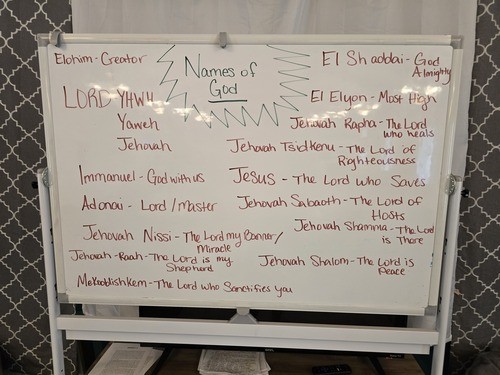 Names of
God
Elohim - Creator
LORD YHWH
Yaweh
Jehovah
Immanuel - God with us
Adonai - Lord / Master
Jehovah Nissi - The Lord my Banner/
Miracle
Jehovah - Raah - The Lord is my
Shepherd
Mekoddishkem - The Lord who Sanctifies you
El Shaddai - God
Almighty
El Elyon - Most High
Jehovah Rapha - The Lord
who heals
Jehovah Tsidkenu - The Lord of
Righteousness
Jesus - The Lord who Saves
Jehovah Sabaoth - The Lord of
Hosts
Jehovah Shamma - The Lord
is There
Jehovah Shalom - The Lord is
Peace